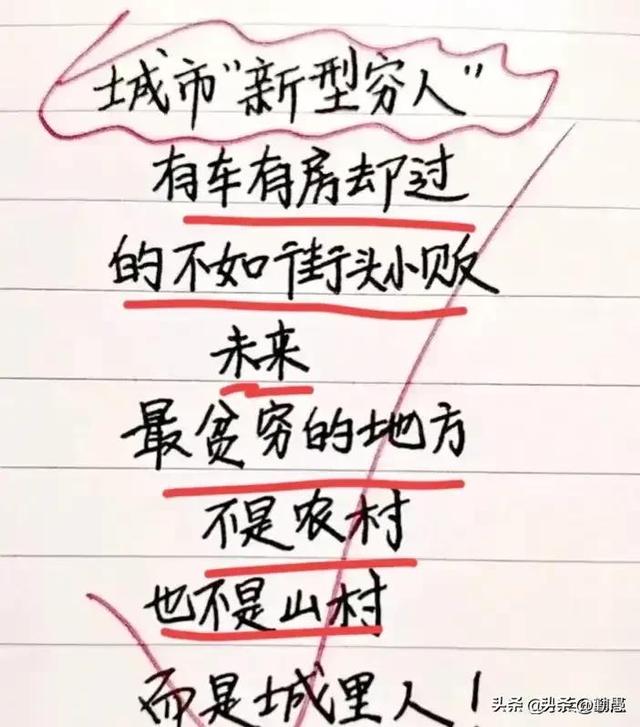 城市"新型穷人"
有车有房却过
的不如街头小贩
未来
最贫穷的地方
不是农村
也不是山村
而是城里人！
头条 @头条@勤愚